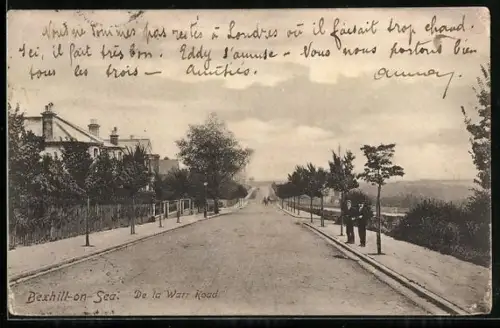 Nous ne sommes pas restés à Londres où il faisait trop chaud.
Ici, il fait très bon. Eddy s'amuse - Nous nous portons bien
tous les trois - Amitiés.
Bexhill-on-Sea. De la Warr Road.